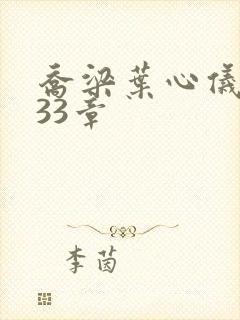 乔梁葉心儀
33章
李茵